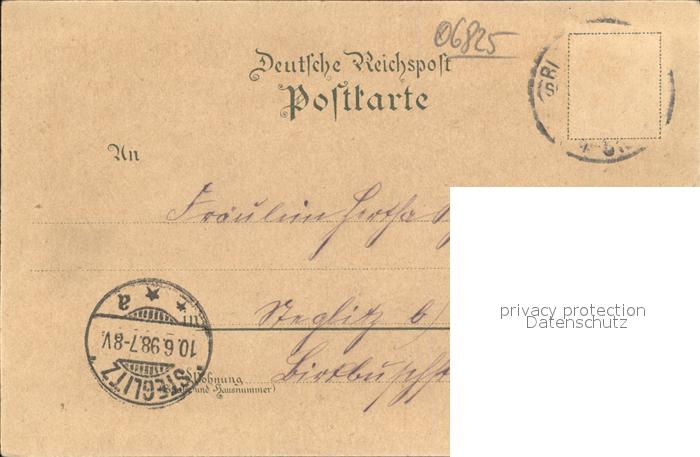 06825
Deutsche Reichspost
Postkarte
An
Fräulein Hertha
in Steglitz b/
Wohnung
(Straße und Hausnummer)
STEGLITZ
10.6.98.7-8V.
* * a
privacy protection
Datenschutz